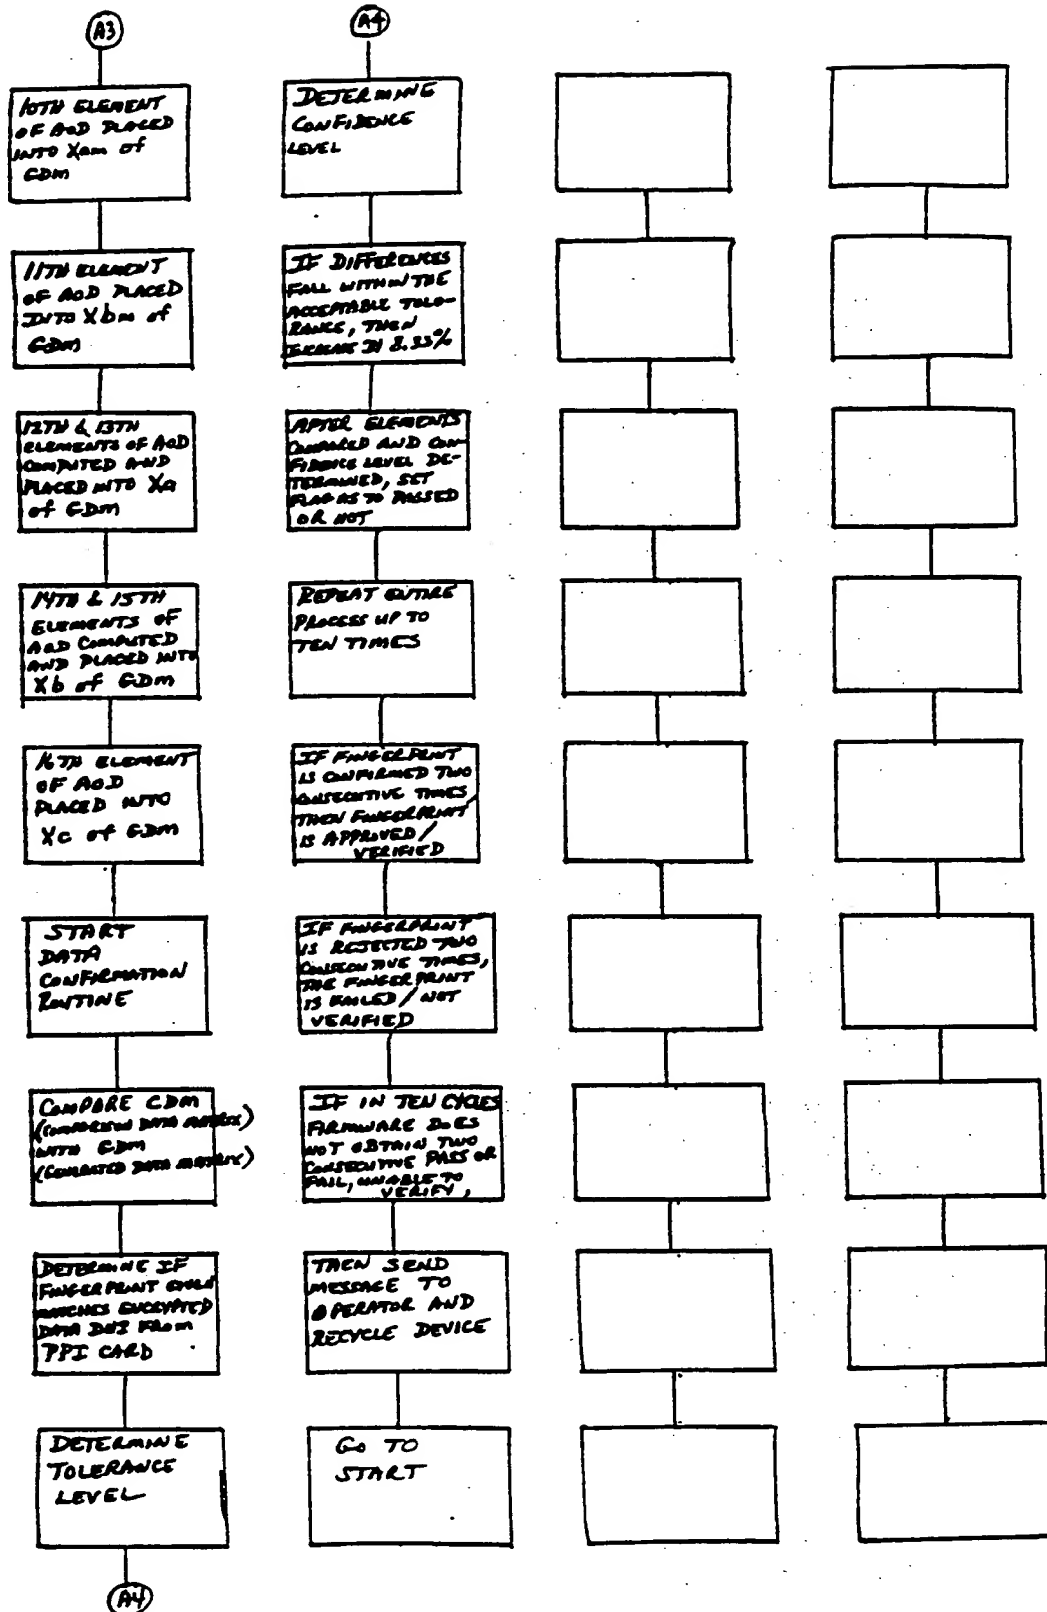 A3
10TH ELEMENT
OF AOD PLACED
INTO Xam of
GDM
11TH ELEMENT
OF AOD PLACED
INTO Xbm of
GDM
12TH & 13TH
ELEMENTS OF AOD
COMPUTED AND
PLACED INTO Xa
of GDM
14TH & 15TH
ELEMENTS OF
AOD COMPUTED
AND PLACED INTO
Xb of GDM
16TH ELEMENT
OF AOD
PLACED INTO
Xc of GDM
START
DATA
CONFIRMATION
ROUTINE
COMPARE CDM
(COMPARISON DATA MATRIX)
WITH GDM
(GENERATED DATA MATRIX)
DETERMINE IF
FINGERPRINT
MATCHES ENCRYPTED
DATA FROM
PPI CARD
DETERMINE
TOLERANCE
LEVEL
A4
A4
DETERMINE
CONFIDENCE
LEVEL
IF DIFFERENCES
FALL WITHIN THE
ACCEPTABLE TOLO-
RANCE, THEN
INCREASE IN 8.33%
AFTER ELEMENTS
COMPARED AND CON-
FIDENCE LEVEL DE-
TERMINED, SET
FLAG AS TO PASSED
OR NOT
REPEAT ENTIRE
PROCESS UP TO
TEN TIMES
IF FINGERPRINT
IS CONFIRMED TWO
CONSECUTIVE TIMES
THEN FINGERPRINT
IS APPROVED/
VERIFIED
IF FINGERPRINT
IS REJECTED TWO
CONSECUTIVE TIMES,
THE FINGERPRINT
IS FAILED/NOT
VERIFIED
IF IN TEN CYCLES
FIRMWARE DOES
NOT OBTAIN TWO
CONSECUTIVE PASS OR
FAIL, UNABLE TO
VERIFY,
THEN SEND
MESSAGE TO
OPERATOR AND
RECYCLE DEVICE
GO TO
START